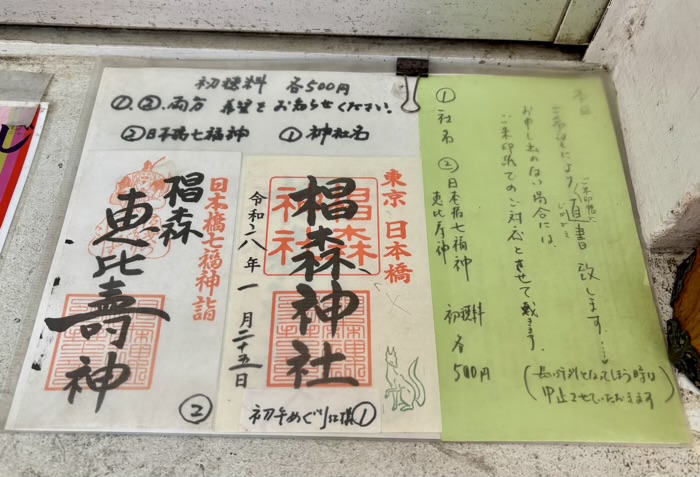 初穂料 各500円
①、②、両方 希望をお知らせください。
②日本橋七福神 ①神社名
日本橋七福神詣
椙森
恵比壽神
②
東京 日本橋
椙森神社
椙森神社
令和八年 一月二十五日
①
本日
ご希望により直書致します
お申し出のない場合には、
ご朱印紙でのご対応とさせて戴きます。
①社名 ②日本橋七福神
恵比寿神
初穂料 各500円
中止させていただきます